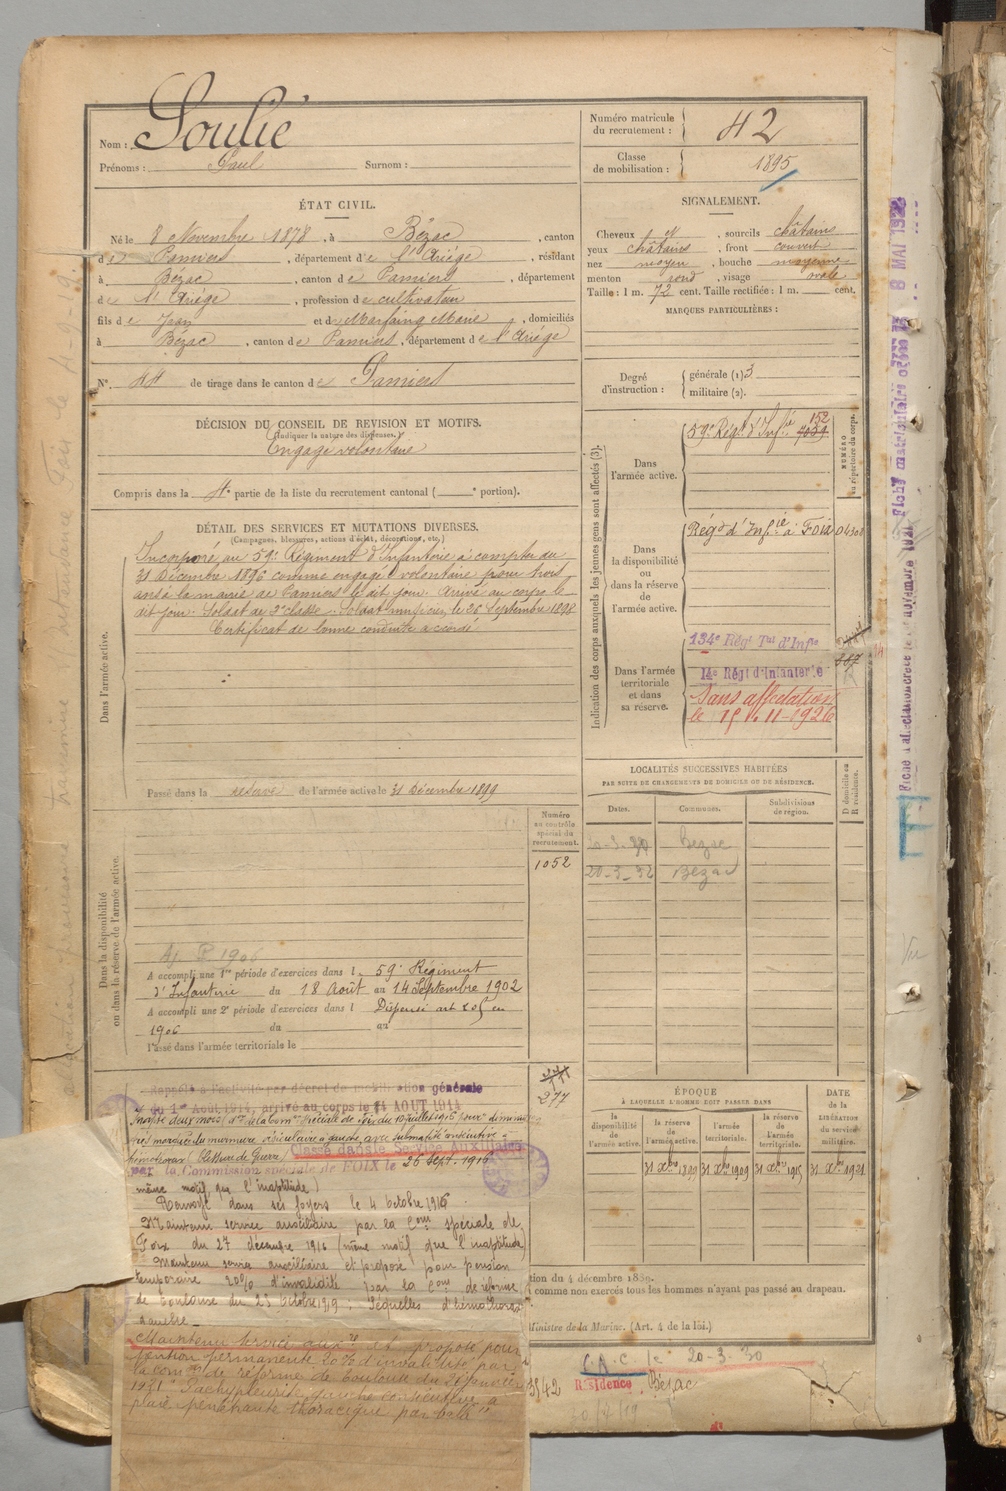 Nom : Soulié
Prénoms : Paul Surnom :
Numéro matricule
du recrutement : 42
Classe
de mobilisation : 1895
ÉTAT CIVIL.
Né le 8 Novembre 1878, à Bézac, canton
de Pamiers, département de l'Ariége, résidant
à Bézac, canton de Pamiers, département
de l'Ariége, profession de cultivateur
fils de Jean et de Marfaing Marie, domiciliés
à Bézac, canton de Pamiers, département de l'Ariége
N°. 44 de tirage dans le canton de Pamiers
SIGNALEMENT.
Cheveux et, sourcils châtains
yeux châtains, front couvert
nez moyen, bouche moyenne
menton rond, visage ovale
Taille : 1 m. 72 cent. Taille rectifiée : 1 m. cent.
MARQUES PARTICULIÈRES :
Degré
d'instruction :
générale (1) 3
militaire (2).
DÉCISION DU CONSEIL DE REVISION ET MOTIFS.
(Indiquer la nature des dispenses.)
Engagé volontaire
Compris dans la 4e partie de la liste du recrutement cantonal ( e portion).
DÉTAIL DES SERVICES ET MUTATIONS DIVERSES.
(Campagnes, blessures, actions d'éclat, décorations, etc.)
Dans l'armée active.
Incorporé au 59e Régiment d'Infanterie à compter du
31 Décembre 1896 comme engagé volontaire pour trois
ans à la mairie de Pamiers le dit jour. Arrivé au corps le
dit jour. Soldat de 2e classe. Soldat musicien, le 26 Septembre 1898
Certificat de bonne conduite accordé
Passé dans la réserve de l'armée active le 31 Décembre 1899
Indication des corps auxquels les jeunes gens sont affectés (3).
NUMÉRO
au répertoire du corps.
Dans
l'armée active.
59e Régt d'Infie 152
4039
Dans
la disponibilité
ou
dans la réserve
de
l'armée active.
Régt d'Infie à Foix 04308
Dans l'armée
territoriale
et dans
sa réserve.
134e Régt Tal d'Infie
14e Régt d'Infanterie
387
Sans affectation
le 15.11-1926
LOCALITÉS SUCCESSIVES HABITÉES
PAR SUITE DE CHANGEMENTS DE DOMICILE OU DE RÉSIDENCE.
Dates. Communes. Subdivisions
de région.
D domicile ou
R résidence.
20-3-30 Bezac
20-3-32 Bezac
Numéro
au contrôle
spécial du
recrutement.
1052
Dans la disponibilité
ou dans la réserve de l'armée active.
Aj. P. 1906
A accompli une 1re période d'exercices dans l 59e Régiment
d'Infanterie du 18 Août au 14 Septembre 1902
A accompli une 2e période d'exercices dans l Dispensé art en
1906 du au
Passé dans l'armée territoriale le
277
Rappelé à l'activité par décret de mobilisation générale
du 1er Août 1914, arrivé au corps le 14 AOUT 1914
Classé dans le Service Auxiliaire
par la Commission spéciale de FOIX le 26 Sept. 1916
même motif que l'inaptitude)
Renvoyé dans ses foyers le 4 Octobre 1916.
Maintenu service auxiliaire par la Com spéciale de
Foix du 27 décembre 1916 (même motif que l'inaptitude)
Maintenu service auxiliaire et proposé pour pension
temporaire 20% d'invalidité par la Con de réforme
de Toulouse du 23 Octobre 1919 : Séquelles d'hémothorax
gauche
Maintenu service auxre et proposé pour
pension permanente 20% d'invalidité par
la com de réforme de Toulouse du 26 janvier
1921 "Pachypleurite gauche consécutive à
plaie pénétrante thoracique par balle"
ÉPOQUE
À LAQUELLE L'HOMME DOIT PASSER DANS
DATE
de la
LIBÉRATION
du service
militaire.
la
disponibilité
de
l'armée active.
la réserve
de
l'armée active.
l'armée
territoriale.
la réserve
de
l'armée
territoriale.
31 Xbre 1899 31 Xbre 1909 31 Xbre 1915 31 Xbre 1921
tion du 4 décembre 1889.
comme non exercés tous les hommes n'ayant pas passé au drapeau.
Ministre de la Marine. (Art. 4 de la loi.)
C.A.C. le 20-3-30
Résidence Bézac
8 MAI 1922